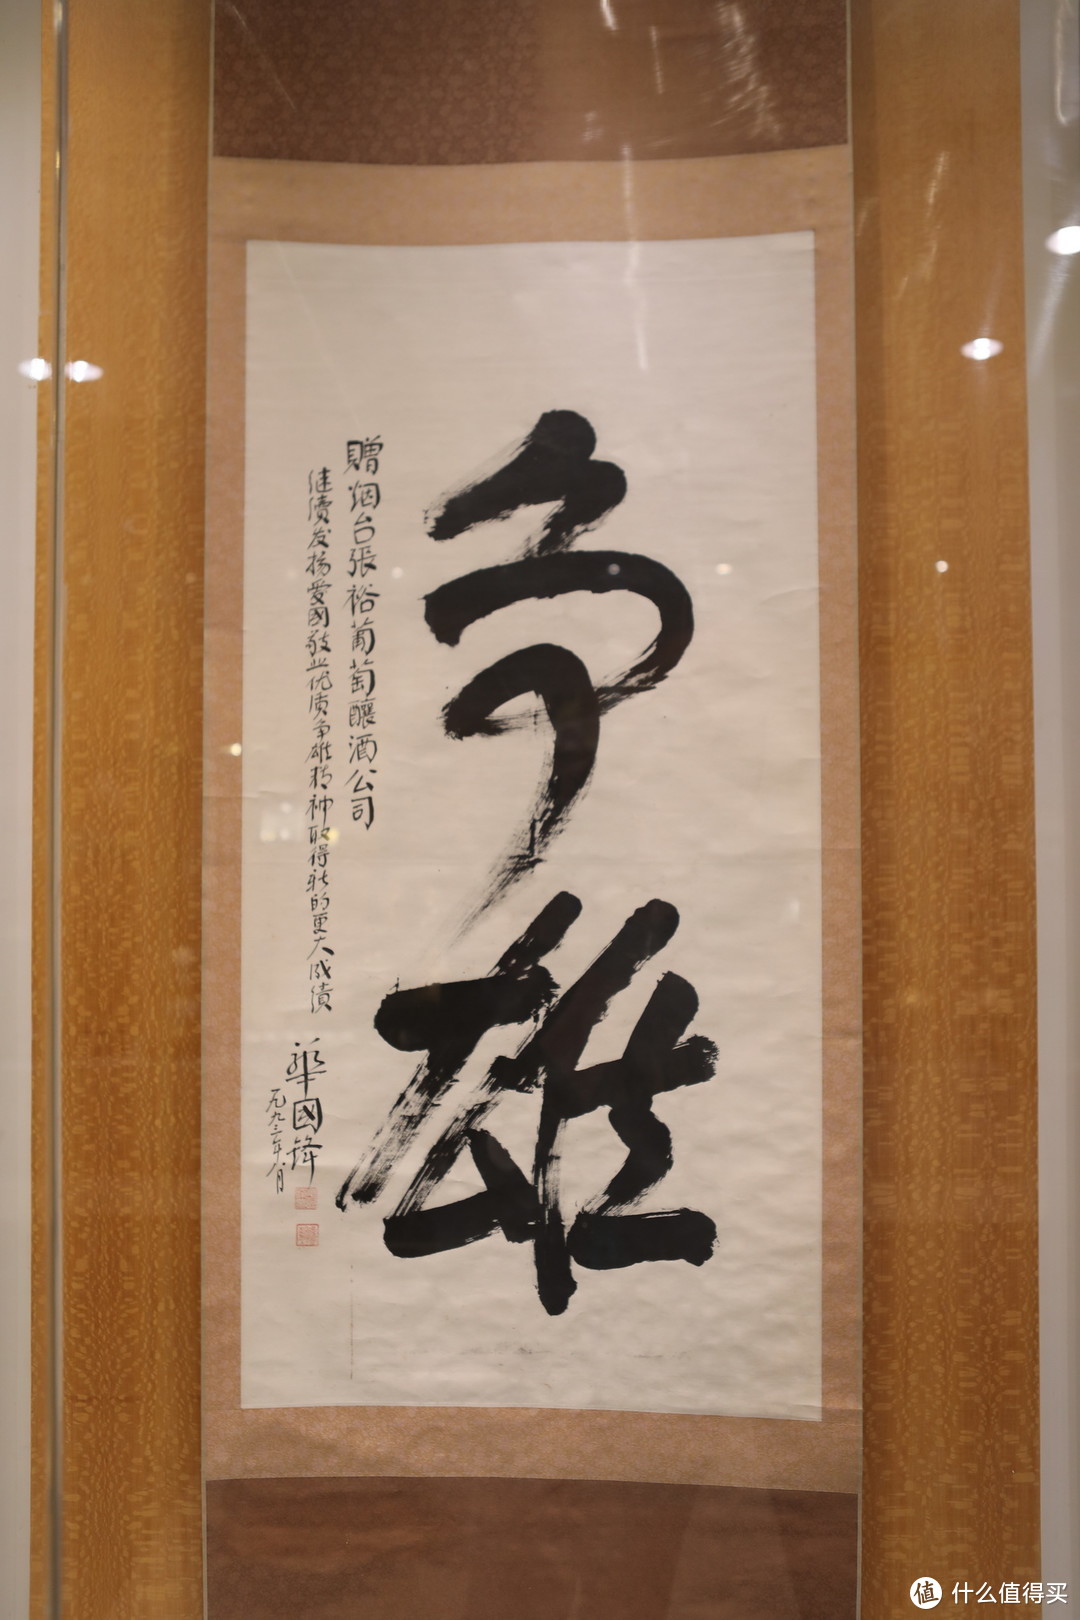 争雄
贈烟台張裕葡萄釀酒公司
继續发扬愛國敬业优质争雄精神取得新的更大成績
華國锋
一九九二年八月
值 什么值得买